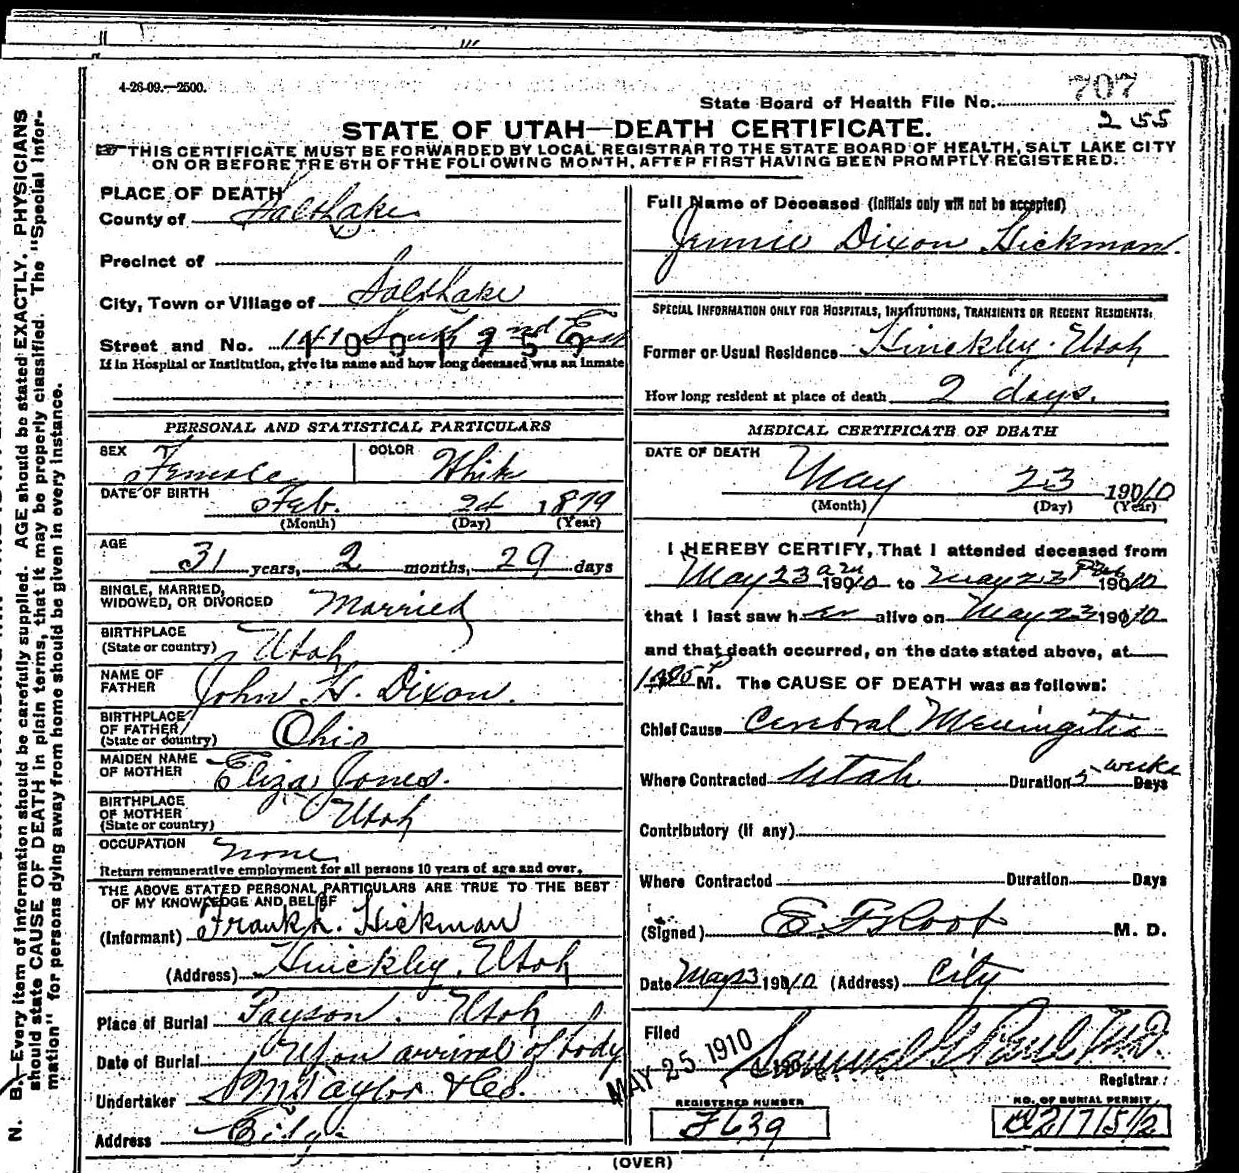 4-26-09.—2500.
State Board of Health File No. 707
255
STATE OF UTAH—DEATH CERTIFICATE.
THIS CERTIFICATE MUST BE FORWARDED BY LOCAL REGISTRAR TO THE STATE BOARD OF HEALTH, SALT LAKE CITY
ON OR BEFORE THE 5TH OF THE FOLLOWING MONTH, AFTER FIRST HAVING BEEN PROMPTLY REGISTERED.
PLACE OF DEATH
County of Salt Lake
Precinct of
City, Town or Village of Salt Lake
Street and No. South 2nd East
1001759
If in Hospital or Institution, give its name and how long deceased was an inmate
PERSONAL AND STATISTICAL PARTICULARS
SEX Female COLOR White
DATE OF BIRTH Feb. 2d 1879
(Month) (Day) (Year)
AGE 31 years, 2 months, 29 days
SINGLE, MARRIED,
WIDOWED, OR DIVORCED Married
BIRTHPLACE
(State or country) Utah
NAME OF
FATHER John H. Dixon.
BIRTHPLACE
OF FATHER
(State or country) Ohio
MAIDEN NAME
OF MOTHER Eliza Jones.
BIRTHPLACE
OF MOTHER
(State or country) Utah
OCCUPATION none
Return remunerative employment for all persons 10 years of age and over.
THE ABOVE STATED PERSONAL PARTICULARS ARE TRUE TO THE BEST
OF MY KNOWLEDGE AND BELIEF
(Informant) Frank Hickman
(Address) Hinckley, Utah
Place of Burial Payson. Utah
Date of Burial Upon arrival of body
Undertaker Taylor & Co.
Address City
Full Name of Deceased (Initials only will not be accepted)
Jennie Dixon Hickman.
SPECIAL INFORMATION ONLY FOR HOSPITALS, INSTITUTIONS, TRANSIENTS OR RECENT RESIDENTS:
Former or Usual Residence Hinckley. Utah
How long resident at place of death 2 days.
MEDICAL CERTIFICATE OF DEATH
DATE OF DEATH
May 23 19010
(Month) (Day) (Year)
I HEREBY CERTIFY, That I attended deceased from
May 23 am 19010 to May 23 Pm 19010
that I last saw her alive on May 23 19010
and that death occurred, on the date stated above, at
M. The CAUSE OF DEATH was as follows:
Chief Cause Cerebral Meningitis
Where Contracted Utah Duration 5 weeks Days
Contributory (if any)
Where Contracted Duration Days
(Signed) E. F. Root M. D.
Date May 23 19010 (Address) City
Filed MAY 25 1910 190
Registrar
REGISTERED NUMBER
F639
NO. OF BURIAL PERMIT
(OVER)
N. B.—Every item of information should be carefully supplied. AGE should be stated EXACTLY. PHYSICIANS
should state CAUSE OF DEATH in plain terms, that it may be properly classified. The "Special Infor-
mation" for persons dying away from home should be given in every instance.